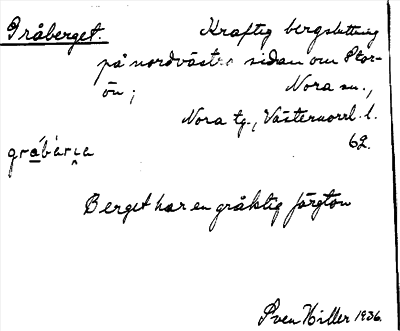 Gråberget. Kraftig bergsluttning
på nordvästra sidan om Stor-
ön; Nora sn.,
Nora tg., Västernorrl. l.
62.
gråbärjɛ
Berget har en gråktig färgton
Sven Hiller 1936.